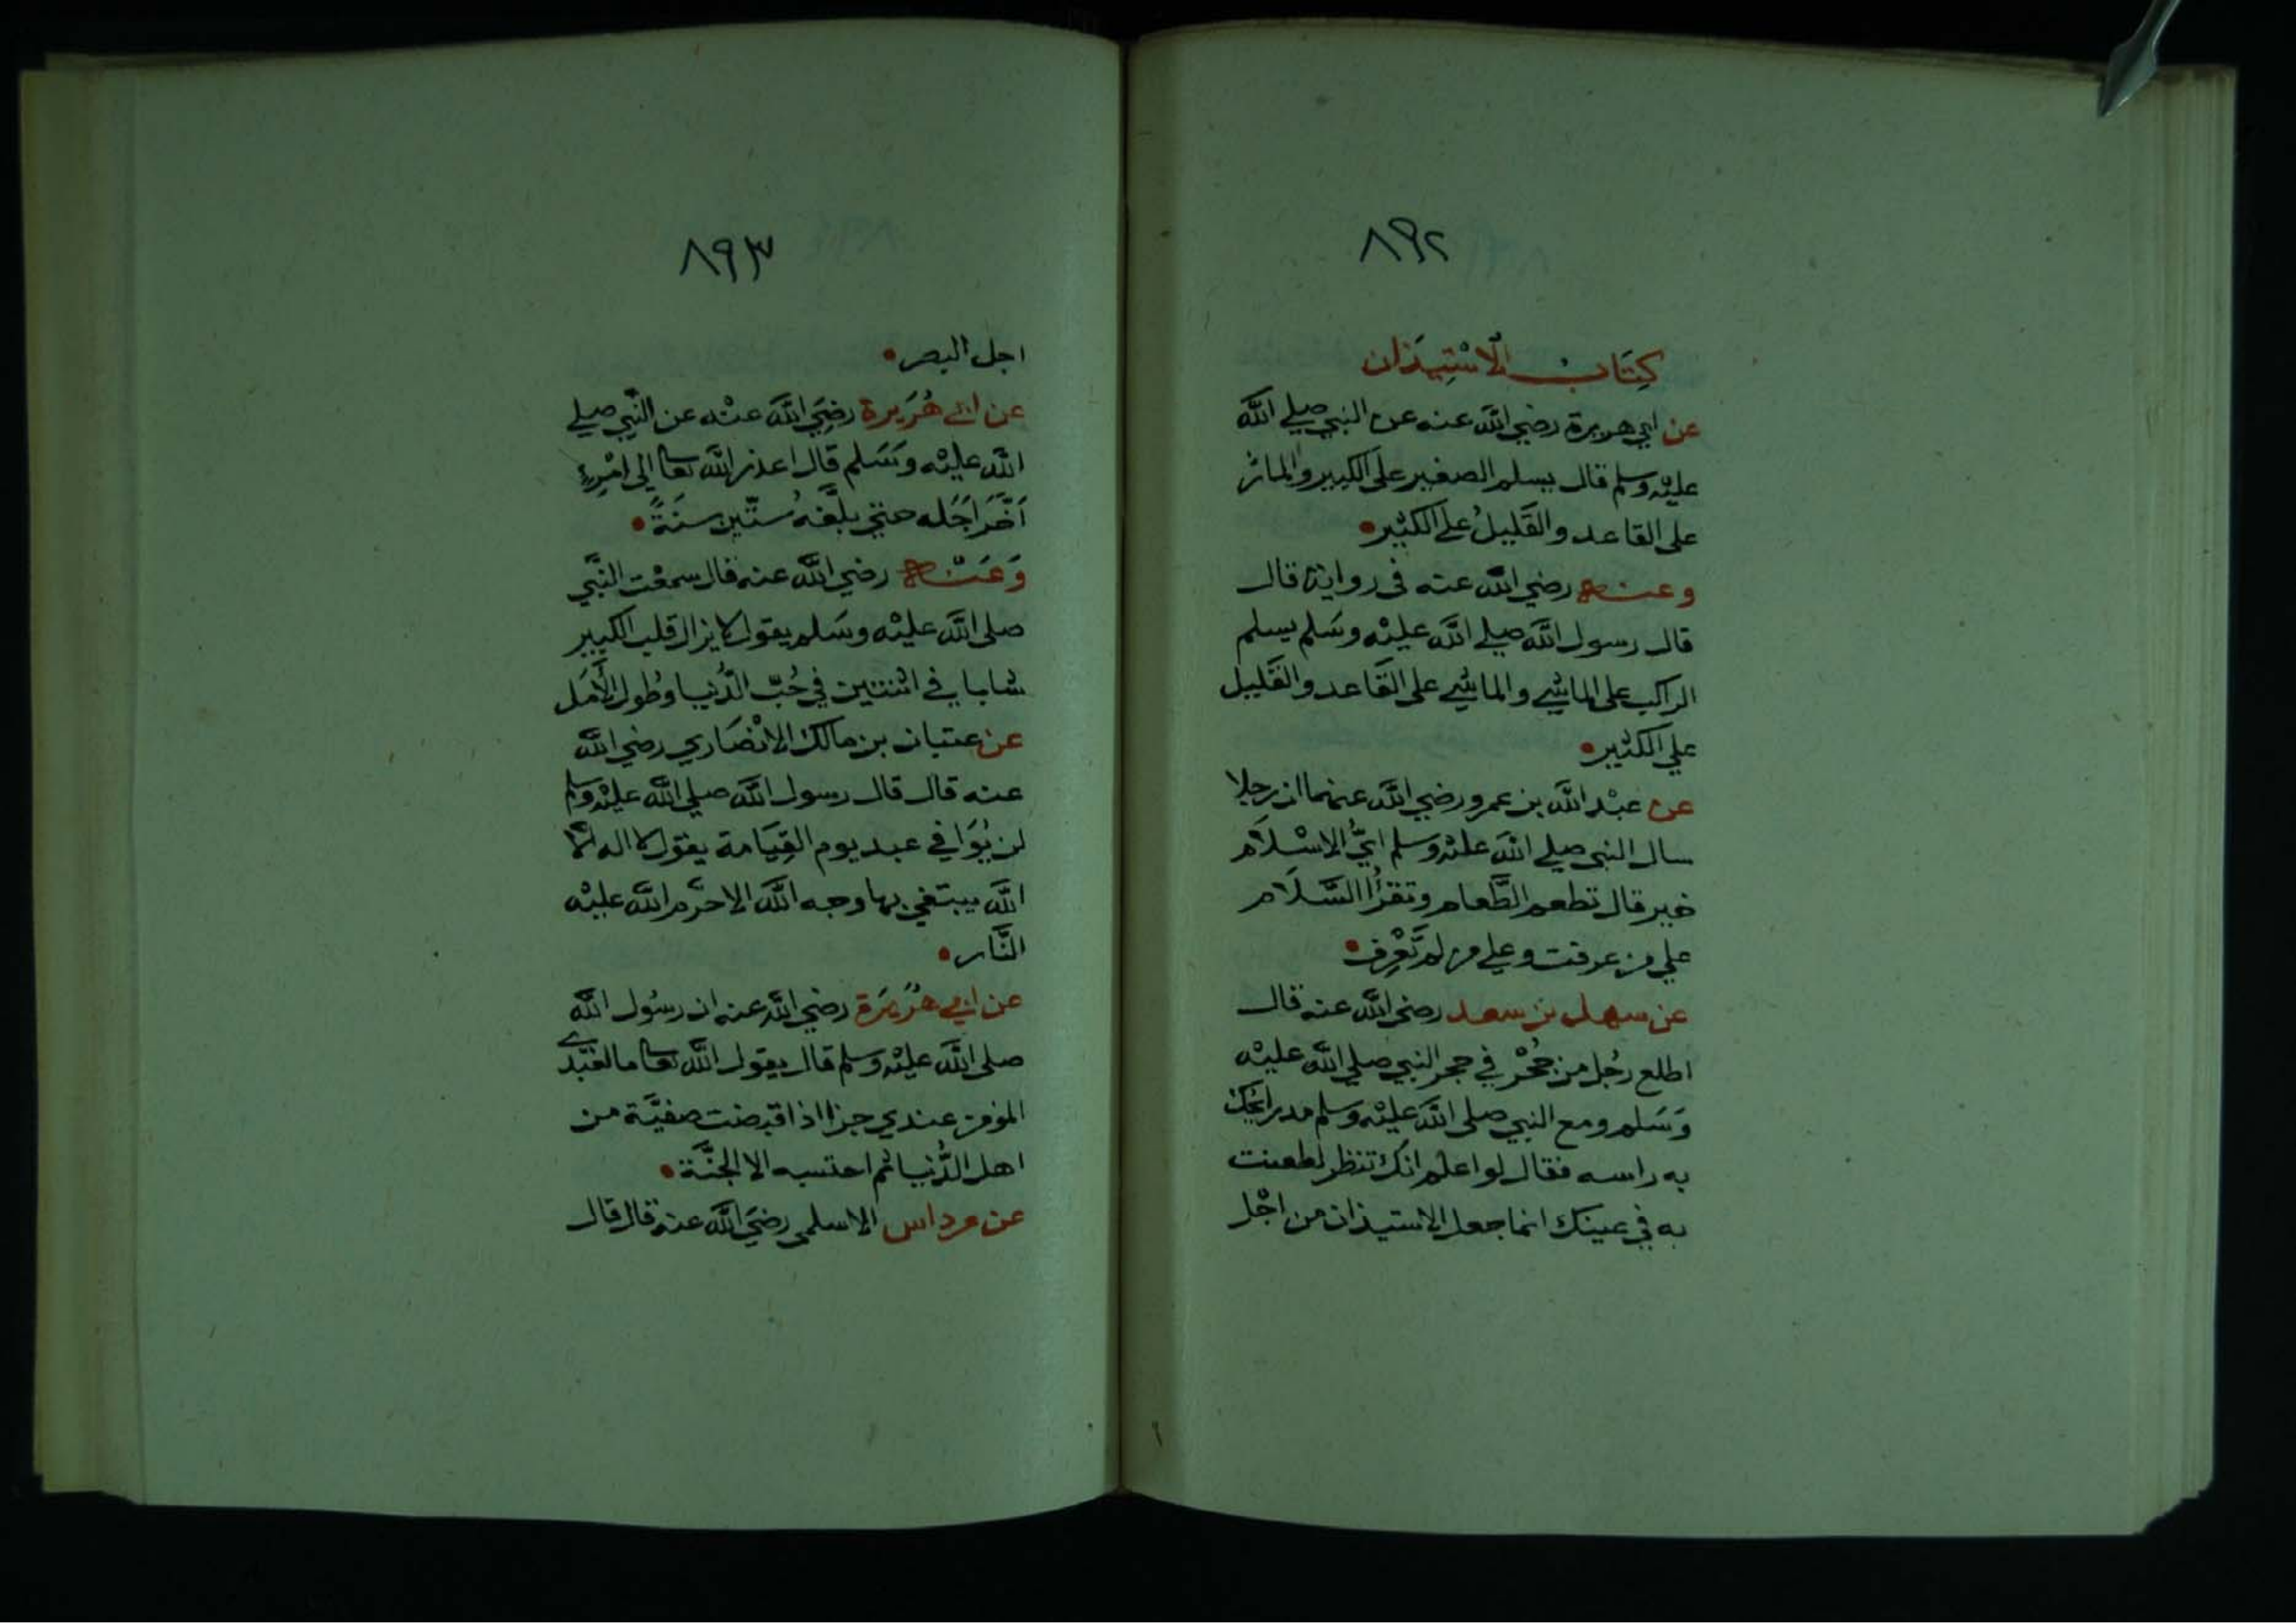 ٨٩٢
كِتَابُ الاسْتِيذَان
عن ابي هريرة رضي الله عنه عن النبي صلي الله
عليْه وسلم قال يسلم الصغير على الكبير والمارّ
على القاعد والقَليلُ علي الكثير
وعنه رضي الله عنه فى رواية قال
قال رسول الله صلي الله عليْه وسَلم يسلم
الراكب على الماشي والماشي على القَاعد والقَليل
علي الكثير
عن عبْد الله بن عمرو رضي الله عنهما ان رجلا
سال النبي صلي الله عليْه وسلم ايُّ الاسْلَام
خير قال تطعم الطَّعام وتقرأُ السَّلَام
علي من عرفت وعلي من لم تَعْرِف
عن سهل بن سعد رضي الله عنه قال
اطلع رجُل من جُحْر في حجر النبي صلي الله عليْه
وَسَلم ومع النبي صلى الله عليْه وسلم مدرا يحك
به راسه فقال لو اعلم انك تنظر لطعنت
به في عينك انما جعل الاستيذان من اجْل
٨٩٣
اجل البصر
عن ابي هُرَيرة رضِيَ الله عنْه عن النَّبي صلي
الله عليْه وسَلم قال اعذر الله تعا الى امْرِءٍ
اَخَّرَ اَجَلَه حتي بلَّغهُ ستّين سنَةً
وَعَنْه رضي الله عنه قال سمعْت النَّبي
صلى الله عليْه وسَلم يقول لا يزال قلب الكبير
شابا في اثنتين في حُبّ الدُّنيا وطُول الأَمَل
عن عتبان بن مالك الانْصَاري رضي الله
عنه قال قال رسول الله صلي الله عليْه وسلم
لن يُوَافي عبد يوم القِيَامة يقول لا اله الَّا
الله يبتغي بها وجه الله الا حرَّم الله عليْه
النَّار
عن ابي هُرَيرَة رضي الله عنه ان رسُول الله
صلى الله عليْه وسلم قال يقول الله تعا ما لعَبْدي
المؤمن عندي جزا اذا قبضت صفيَّة من
اهل الدُّنيا ثم احتسبه الا الجنَّة
عن مرداس الاسلمي رضيَ الله عنه قال قال